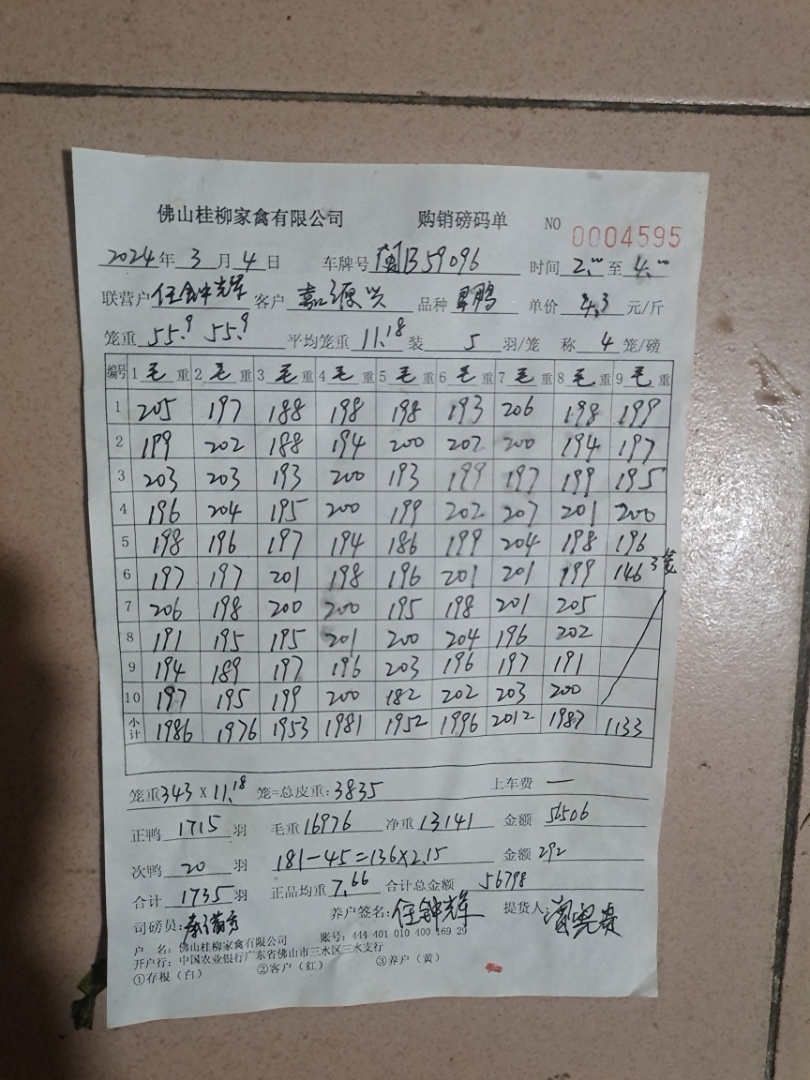 佛山桂柳家禽有限公司 购销磅码单 NO 0004595
2024年 3月 4日 车牌号 闽B59096 时间 2.00 至 4.00
联营户 任钟光辉 客户 嘉源兴 品种 单价 4.3 元/斤
笼重 55.9 55.9 平均笼重 11.18 装 5 羽/笼 称 4 笼/磅
编号 1 毛 重 2 毛 重 3 毛 重 4 毛 重 5 毛 重 6 毛 重 7 毛 重 8 毛 重 9 毛 重
1 205 197 188 198 198 193 206 198 199
2 199 202 188 194 200 207 200 194 197
3 203 203 193 200 193 199 197 199 195
4 196 204 195 200 199 202 207 201 200
5 198 196 197 194 186 199 204 198 196
6 197 197 201 198 196 201 201 199 146 3笼
7 206 198 200 200 195 198 201 205
8 191 195 195 201 200 204 196 202
9 194 189 197 196 203 196 197 191
10 197 195 199 200 182 202 203 200
小计 1986 1976 1953 1981 1952 1996 2012 1987 1133
笼重343 x 11.18 笼=总皮重:3835 上车费 —
正鸭 1715 羽 毛重16976 净重13141 金额 56506
次鸭 20 羽 181-45=136x2.15 金额 292
合计 1735 羽 正品均重 7.66 合计总金额 56798
司磅员: 养户签名: 任钟光辉 提货人:
户 名: 佛山桂柳家禽有限公司 账号: 444 401 010 400 169 29
开户行: 中国农业银行广东省佛山市三水区三水支行
①存根(白) ②客户(红) ③养户(黄)